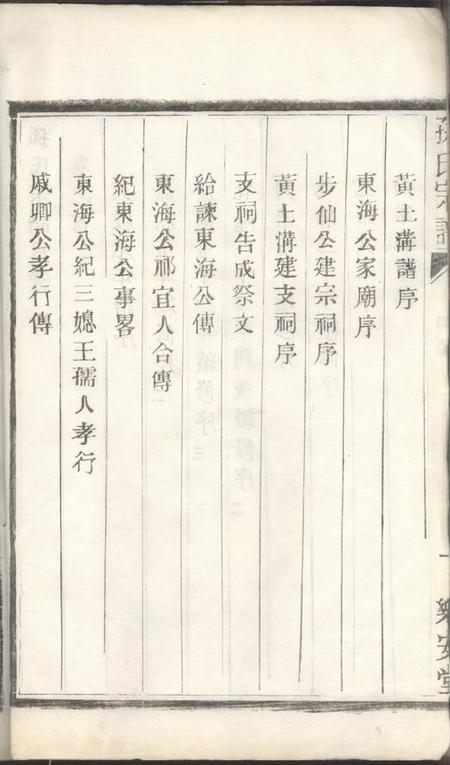 孫氏宗譜
一
樂安堂
黃土溝譜序
東海公家廟序
步仙公建宗祠序
黃土溝建支祠序
支祠告成祭文
給諫東海公傳
東海公祁宜人合傳
紀東海公事畧
東海公紀三媳王孺人孝行
戚卿公孝行傳